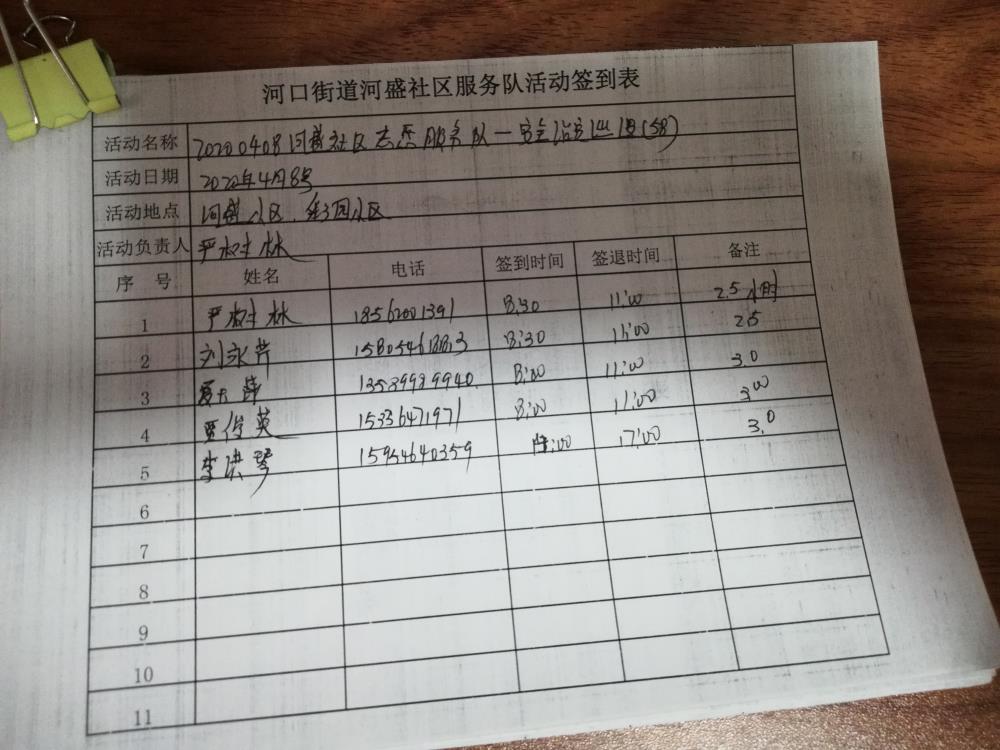 河口街道河盛社区服务队活动签到表
活动名称 20200408河盛社区志愿服务队一安全治安巡逻(58)
活动日期 2020年4月8号
活动地点 河盛小区、 小区
活动负责人 严树林
序 号 姓名 电话 签到时间 签退时间 备注
1 严树林 18562001391 8:30 11:00 2.5小时
2 刘永芹 15805461883 8:30 11:00 2.5
3 13589989940 8:00 11:00 3.0
4 贾俊英 15336471971 8:00 11:00 3.00
5 李洪琴 15954640359 :00 17:00 3.0
6
7
8
9
10
11